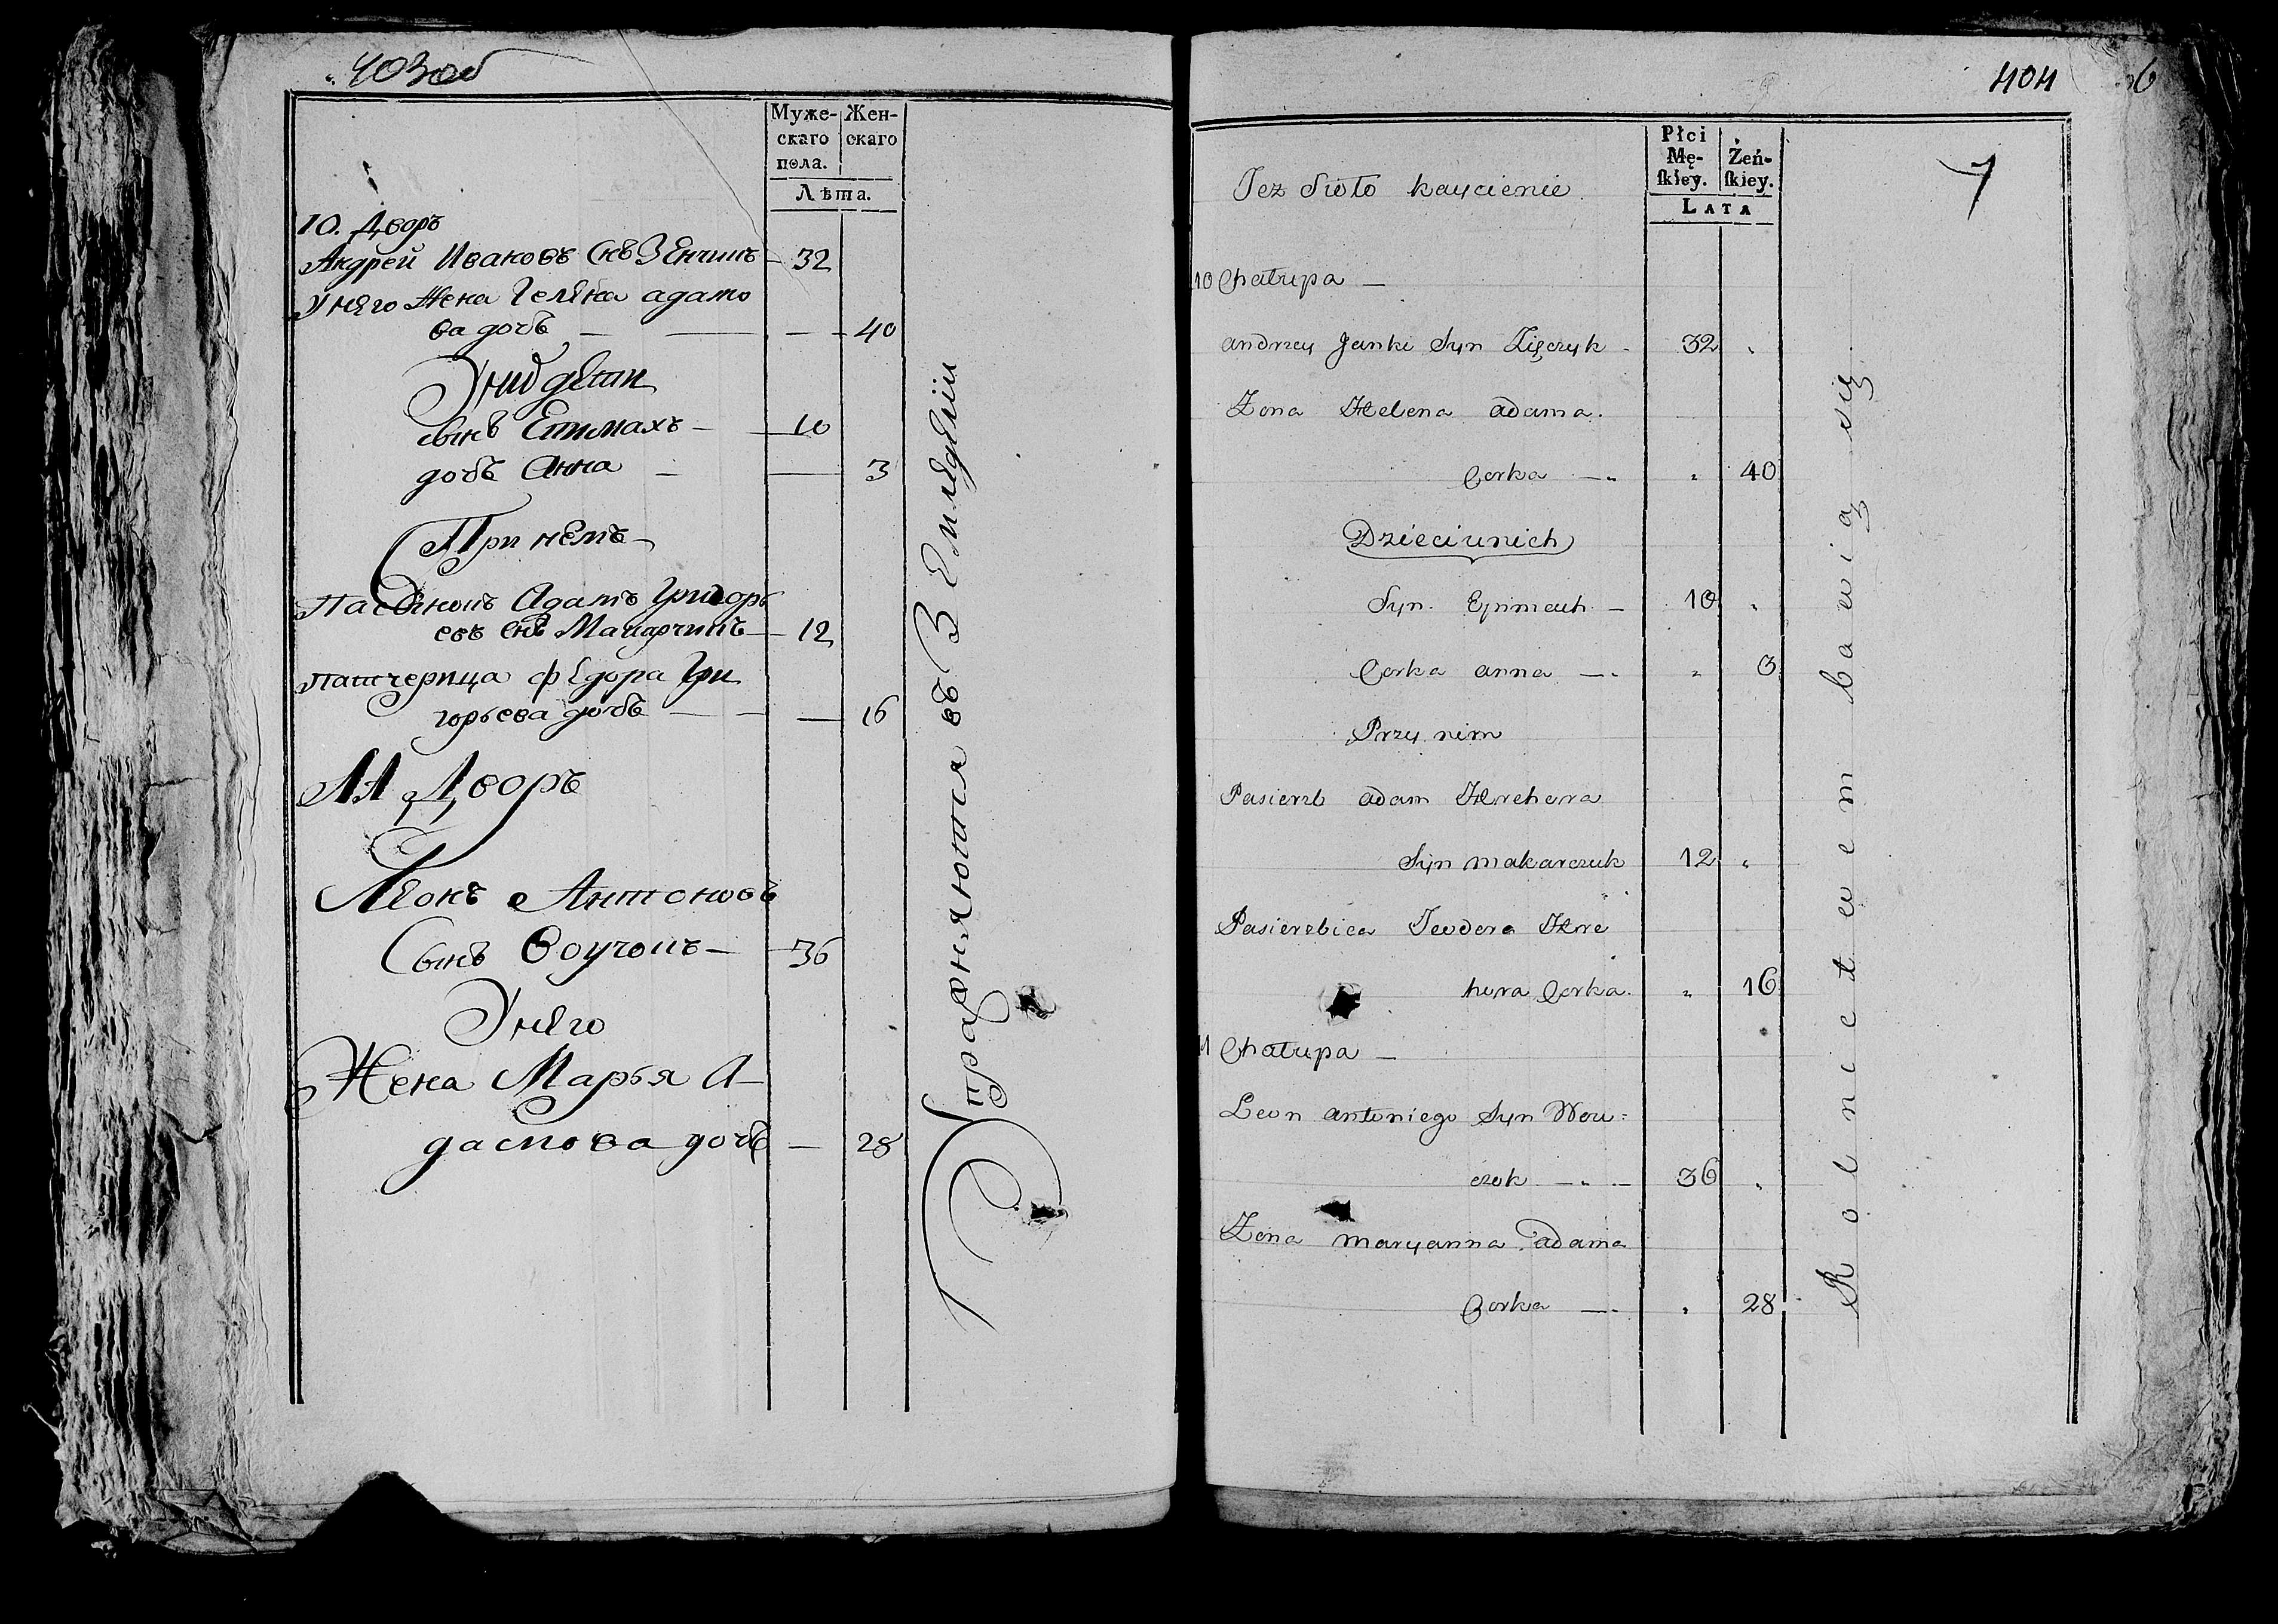 403об
Муже-
скаго
пола.
Жен-
скаго
Лѣта.
10. Дворъ
Андрей Ивановъ Снъ Зенчикъ — 32
У него Жена Гелена адамо
ва дочь — — — 40
У них дети
сынъ Епимахъ — 10
дочь Анна — — 3
При немъ
Пасынокъ Адамъ Григорь
евъ снъ Макарчикъ — 12
Патчерица Федора Гри
горьева дочь — — 16
11 Дворъ
Леонъ Антоновъ
Сынъ Воучокъ — 36
У него
Жена Марья А-
дамова дочь — 28
Упражняются въ Земледелии
404
6
7
Płci
Mę-
skiey.
Żeń-
skiey.
LATA
Też Sioło kaycienie
10 Chałupa —
andrzey Janki Syn Zięczyk - 32
Zona Helena adama.
Corka — 40
Dzieci u nich
Syn. Epimach — 10
Corka anna — 3
Przy nim
Pasierzb adam Hrehora
Syn makarczuk 12
Pasierzbica Teodora Hre
hora Corka. 16
11 Chałupa —
Leon antoniego Syn Wou=
czok — 36
Zona maryanna adama
Corka — 28
Rolnictwem bawią się